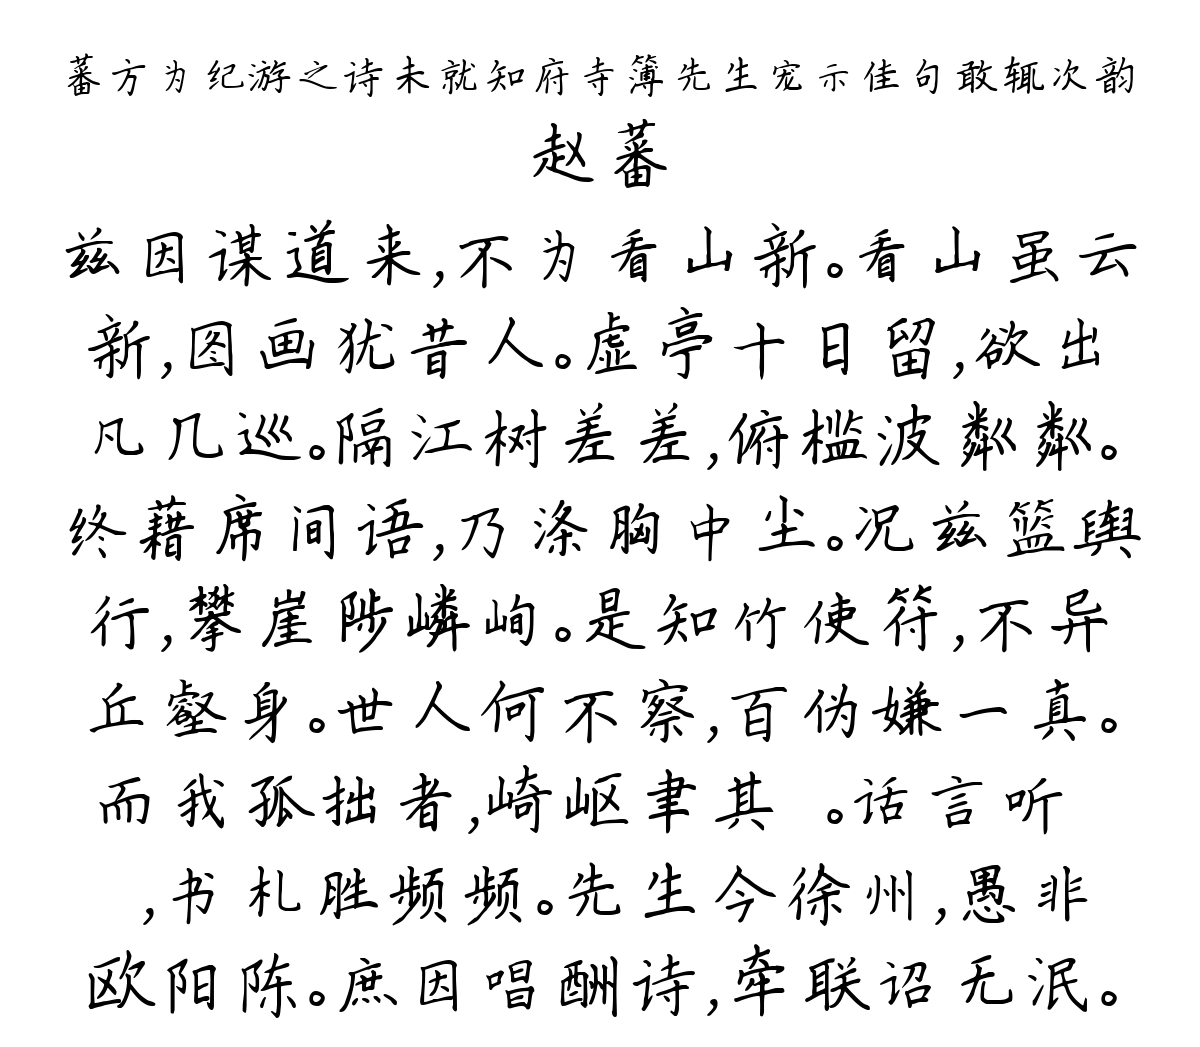 蕃方为纪游之诗未就知府寺簿先生宠示佳句敢辄次韵
赵蕃
兹因谋道来,不为看山新。看山虽云
新,图画犹昔人。虚亭十日留,欲出
凡几巡。隔江树差差,俯槛波粼粼。
终藉席间语,乃涤胸中尘。况兹篮舆
行,攀崖陟嶙峋。是知竹使符,不异
丘壑身。世人何不察,百伪嫌一真。
而我孤拙者,崎岖聿其 。话言听
,书札胜频频。先生今徐州,愚非
欧阳陈。庶因唱酬诗,牵联诏无泯。